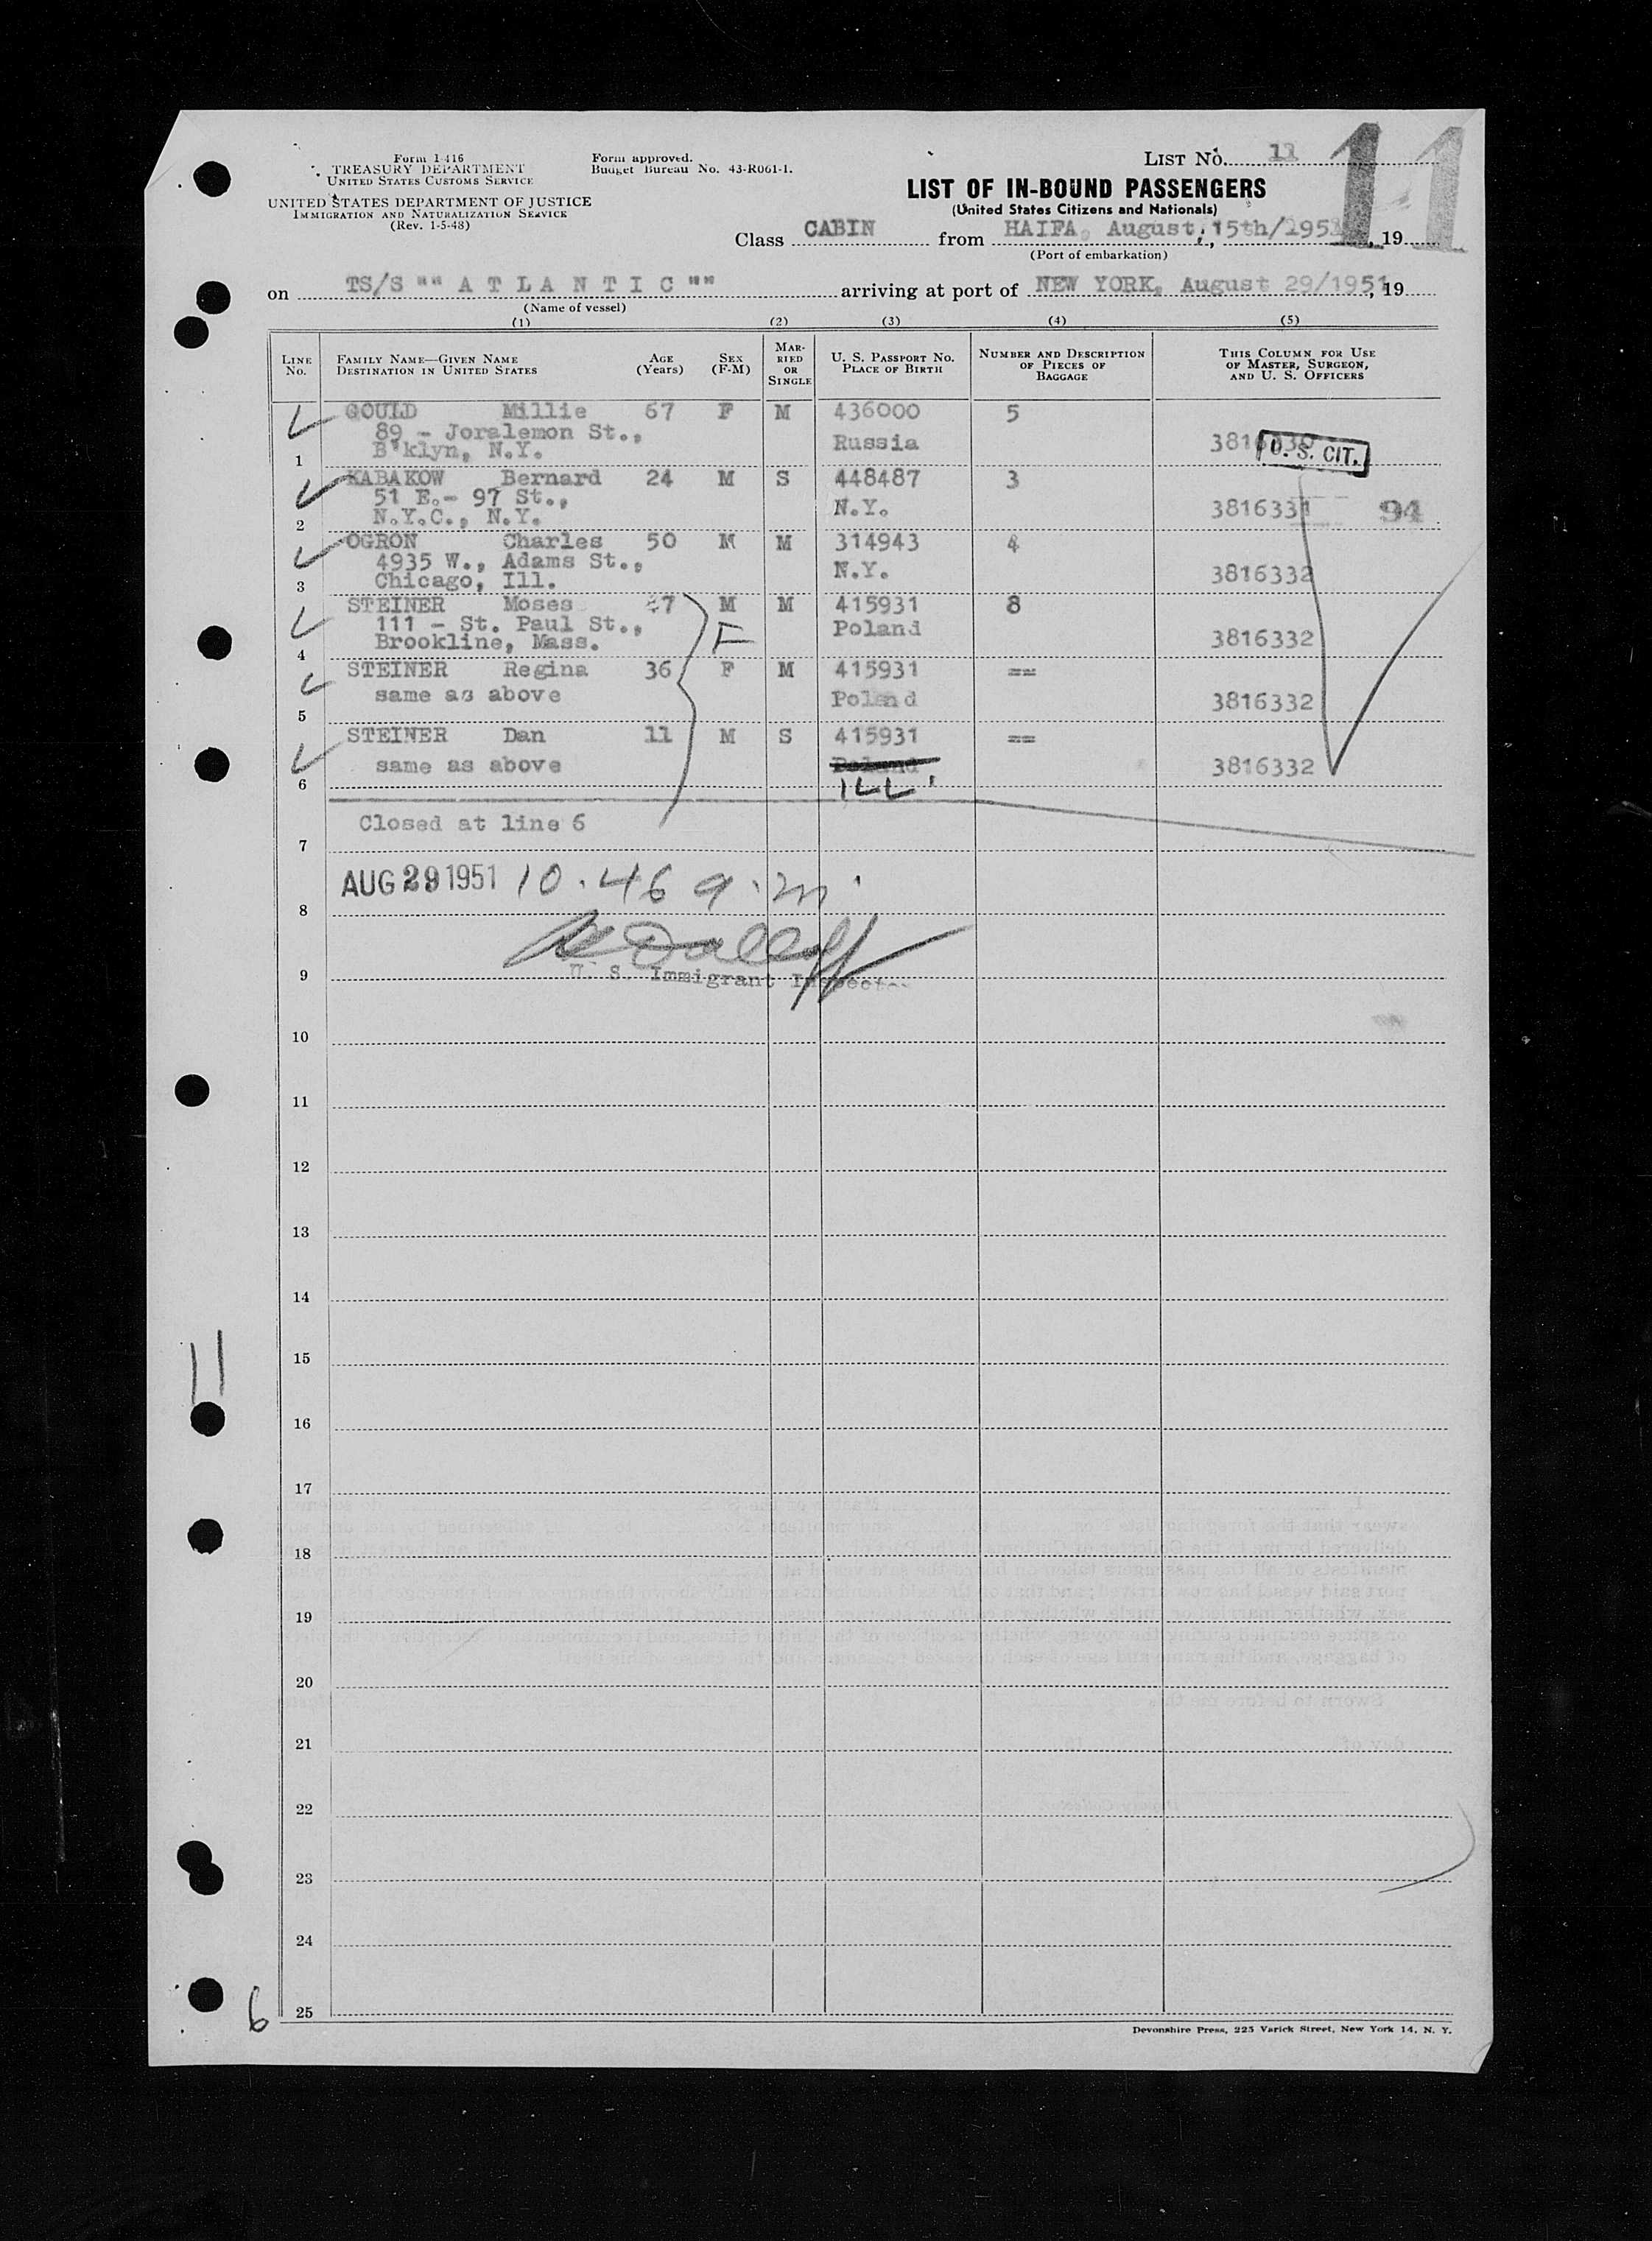 Form I-416
TREASURY DEPARTMENT
UNITED STATES CUSTOMS SERVICE
UNITED STATES DEPARTMENT OF JUSTICE
IMMIGRATION AND NATURALIZATION SERVICE
(Rev. 1-5-48)
Form approved.
Budget Bureau No. 43-R061-1.
LIST No. 11
11
LIST OF IN-BOUND PASSENGERS
(United States Citizens and Nationals)
Class CABIN from HAIFA, August, 15th/1951, 19
(Port of embarkation)
on TS/S "" A T L A N T I C "" arriving at port of NEW YORK, August 29/1951, 19
(Name of vessel)
(1) (2) (3) (4) (5)
LINE No. FAMILY NAME—GIVEN NAME DESTINATION IN UNITED STATES AGE (Years) SEX (F-M) MARRIED OR SINGLE U. S. PASSPORT No. PLACE OF BIRTH NUMBER AND DESCRIPTION OF PIECES OF BAGGAGE THIS COLUMN FOR USE OF MASTER, SURGEON, AND U. S. OFFICERS
GOULD Millie 67 F M 436000 5
89 - Joralemon St., Russia 3816330 U. S. CIT.
1 B'klyn, N.Y.
KABAKOW Bernard 24 M S 448487 3
51 E.- 97 St., N.Y. 3816331 94
2 N.Y.C., N.Y.
OGRON Charles 50 M M 314943 4
4935 W., Adams St., N.Y. 3816332
3 Chicago, Ill.
STEINER Moses 7 M M 415931 8
111 - St. Paul St., F Poland 3816332
4 Brookline, Mass.
STEINER Regina 36 F M 415931 ==
same as above Poland 3816332
5
STEINER Dan 11 M S 415931 ==
same as above Poland 3816332
6 ILL.
Closed at line 6
7
AUG 29 1951 10.46 a.m.
8
9 U. S. Immigrant Inspector
10
11
12
13
14
11
15
16
17
18
19
20
21
22
23
24
25
6
Devonshire Press, 225 Varick Street, New York 14, N. Y.